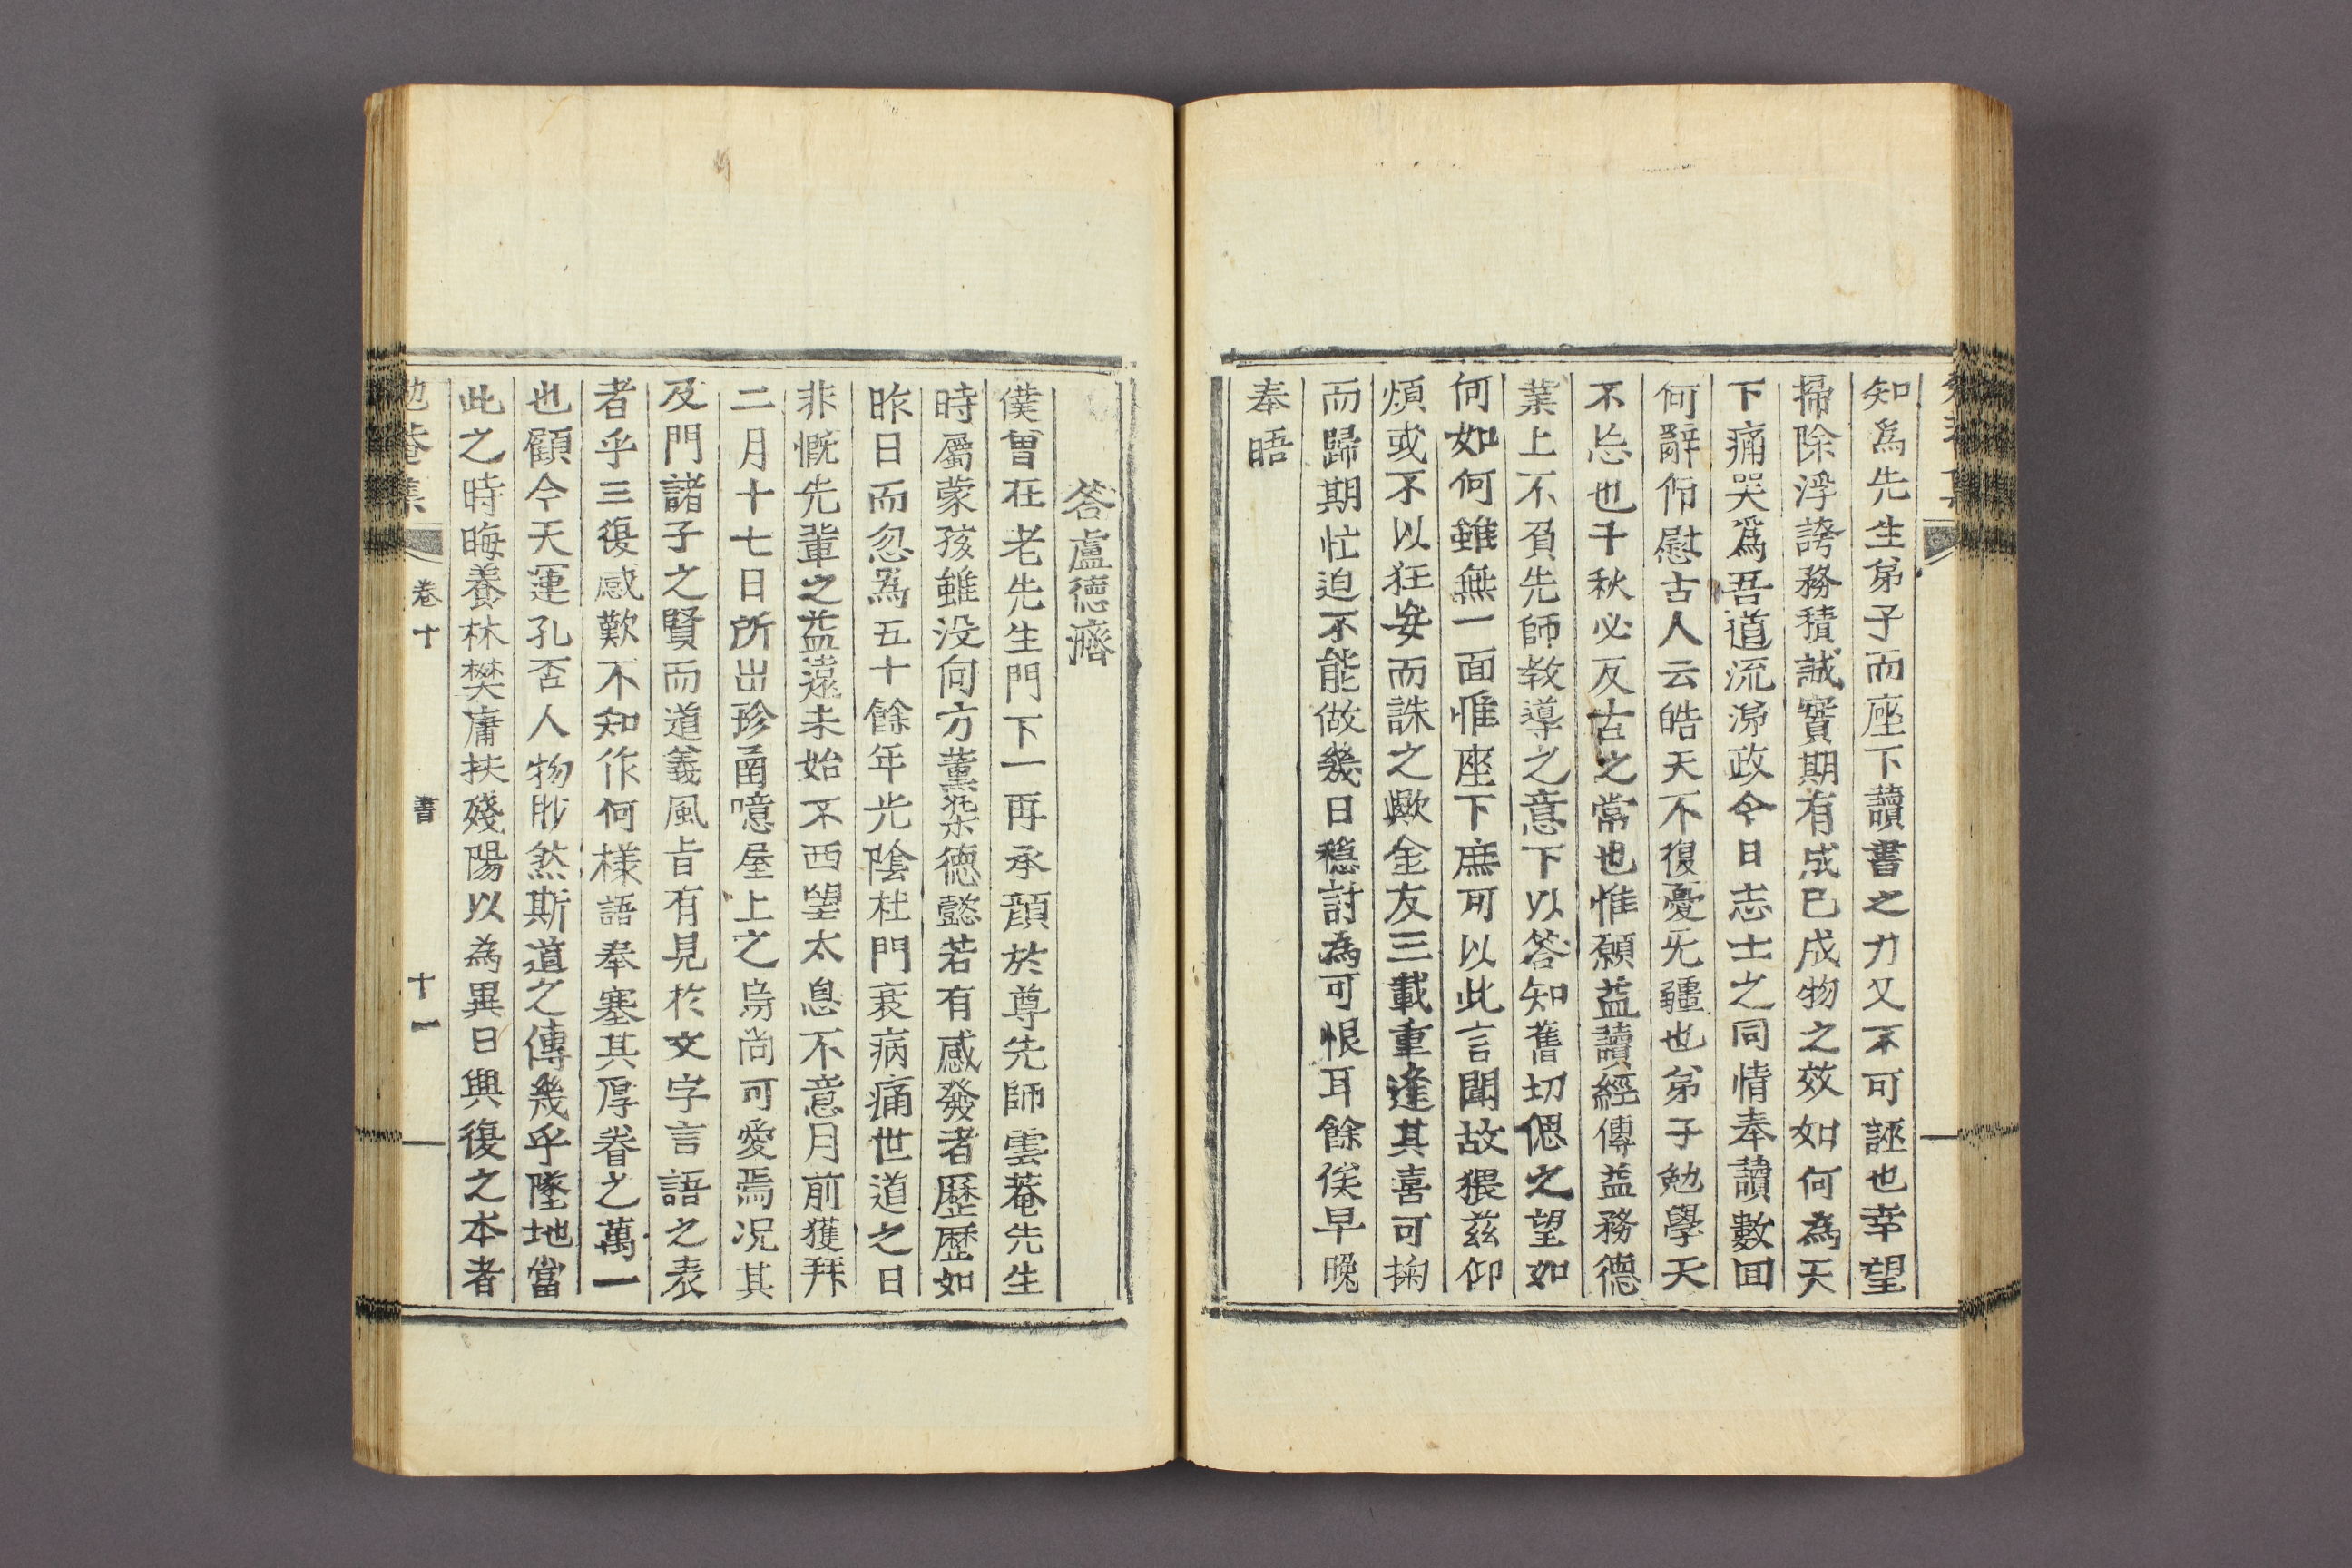 知爲先生弟子而座下讀書之力又不可誣也幸望
掃除浮誇務積誠實期有成已成物之效如何為天
下痛哭爲吾道流涕政今日志士之同情奉讀數回
何辭仰慰古人云皓天不復憂无疆也弟子勉學天
不忘也千秋必反古之常也惟願益讀經傳益務德
業上不負先師敎導之意下以答知舊切偲之望如
何如何雖無一面惟座下庶可以此言聞故猥茲仰
煩或不以狂妄而誅之歟金友三載重逢其喜可掬
而歸期忙迫不能做幾日穩討為可恨耳餘俟早晚
奉晤
答盧德濟
僕曾在老先生門下一再承顔於尊先師雲菴先生
時屬蒙孩雖没向方薰染德懿若有感發者歷歷如
昨日而忽為五十餘年光陰杜門衰病痛世道之日
非慨先輩之益遠未始不西望太息不意月前獲拜
二月十七日所出珍函噫屋上之烏尚可愛焉况其
及門諸子之賢而道義風旨有見於文字言語之表
者乎三復感歎不知作何樣語奉塞其厚眷之萬一
也顧今天運孔否人物眇然斯道之傳幾乎墜地當
此之時晦養林樊庸扶殘陽以為異日興復之本者
勉菴集 卷十 書 十一